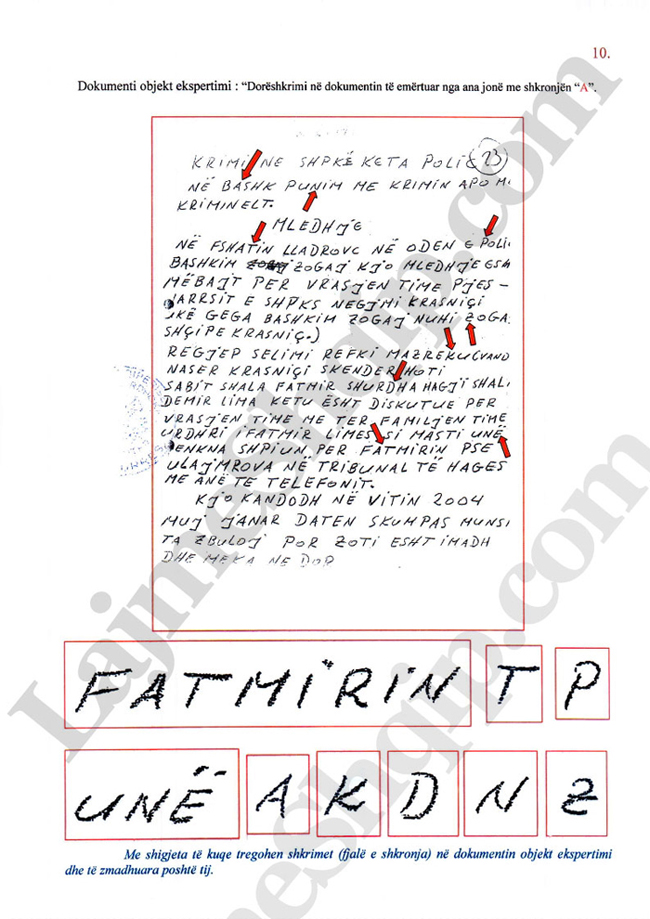 10.
Dokumenti objekt ekspertimi : “Dorëshkrimi në dokumentin të emërtuar nga ana jonë me shkronjën “A”.
KRIMI NE SHPKË KETA POLIC 23
NË BASHK PUNIM ME KRIMIN APO MI
KRIMINELT.
MLEDHJE
NË FSHATIN LLADROVC NË ODEN E POLI
BASHKIM ZOGAJ KJO MLEDHJE ESH
MËBAJT PER VRASJEN TIME PJES -
JARRSIT E SHPKS NEGJMI KRASNIÇI
UKË GEGA BASHKIM ZOGAJ NUHI ZOGA
SHÇIPE KRASNIÇ.)
REGJEP SELIMI REFKI MAZREKU (VAND
NASER KRASNIÇI SKENDER HOTI
SABIT SHALA FATMIR SHURDHA HAGJI SHALI
DEMIR LIMA KETU ËSHT DISKUTUE PER
VRASJEN TIME ME TER FAMILJEN TIME
URDHRI I FATMIR LIMES SI MASTI UNË
ENKNA SHPIUN PER FATMIRIN PSE
ULAJMROVA NË TRIBUNAL TË HAGES
ME ANË TE TELEFONIT.
KJO KANDODH NË VITIN 2004
MUJ JANAR DATEN SKUMPAS MUNSI
TA ZBULOJ POR ZOTI ESHT IMADH
DHE MEKA NE DOR
FATMIRIN T P
UNË A K D N Z
Me shigjeta të kuqe tregohen shkrimet (fjalë e shkronja) në dokumentin objekt ekspertimi
dhe të zmadhuara poshtë tij.
LajmeShqip.com